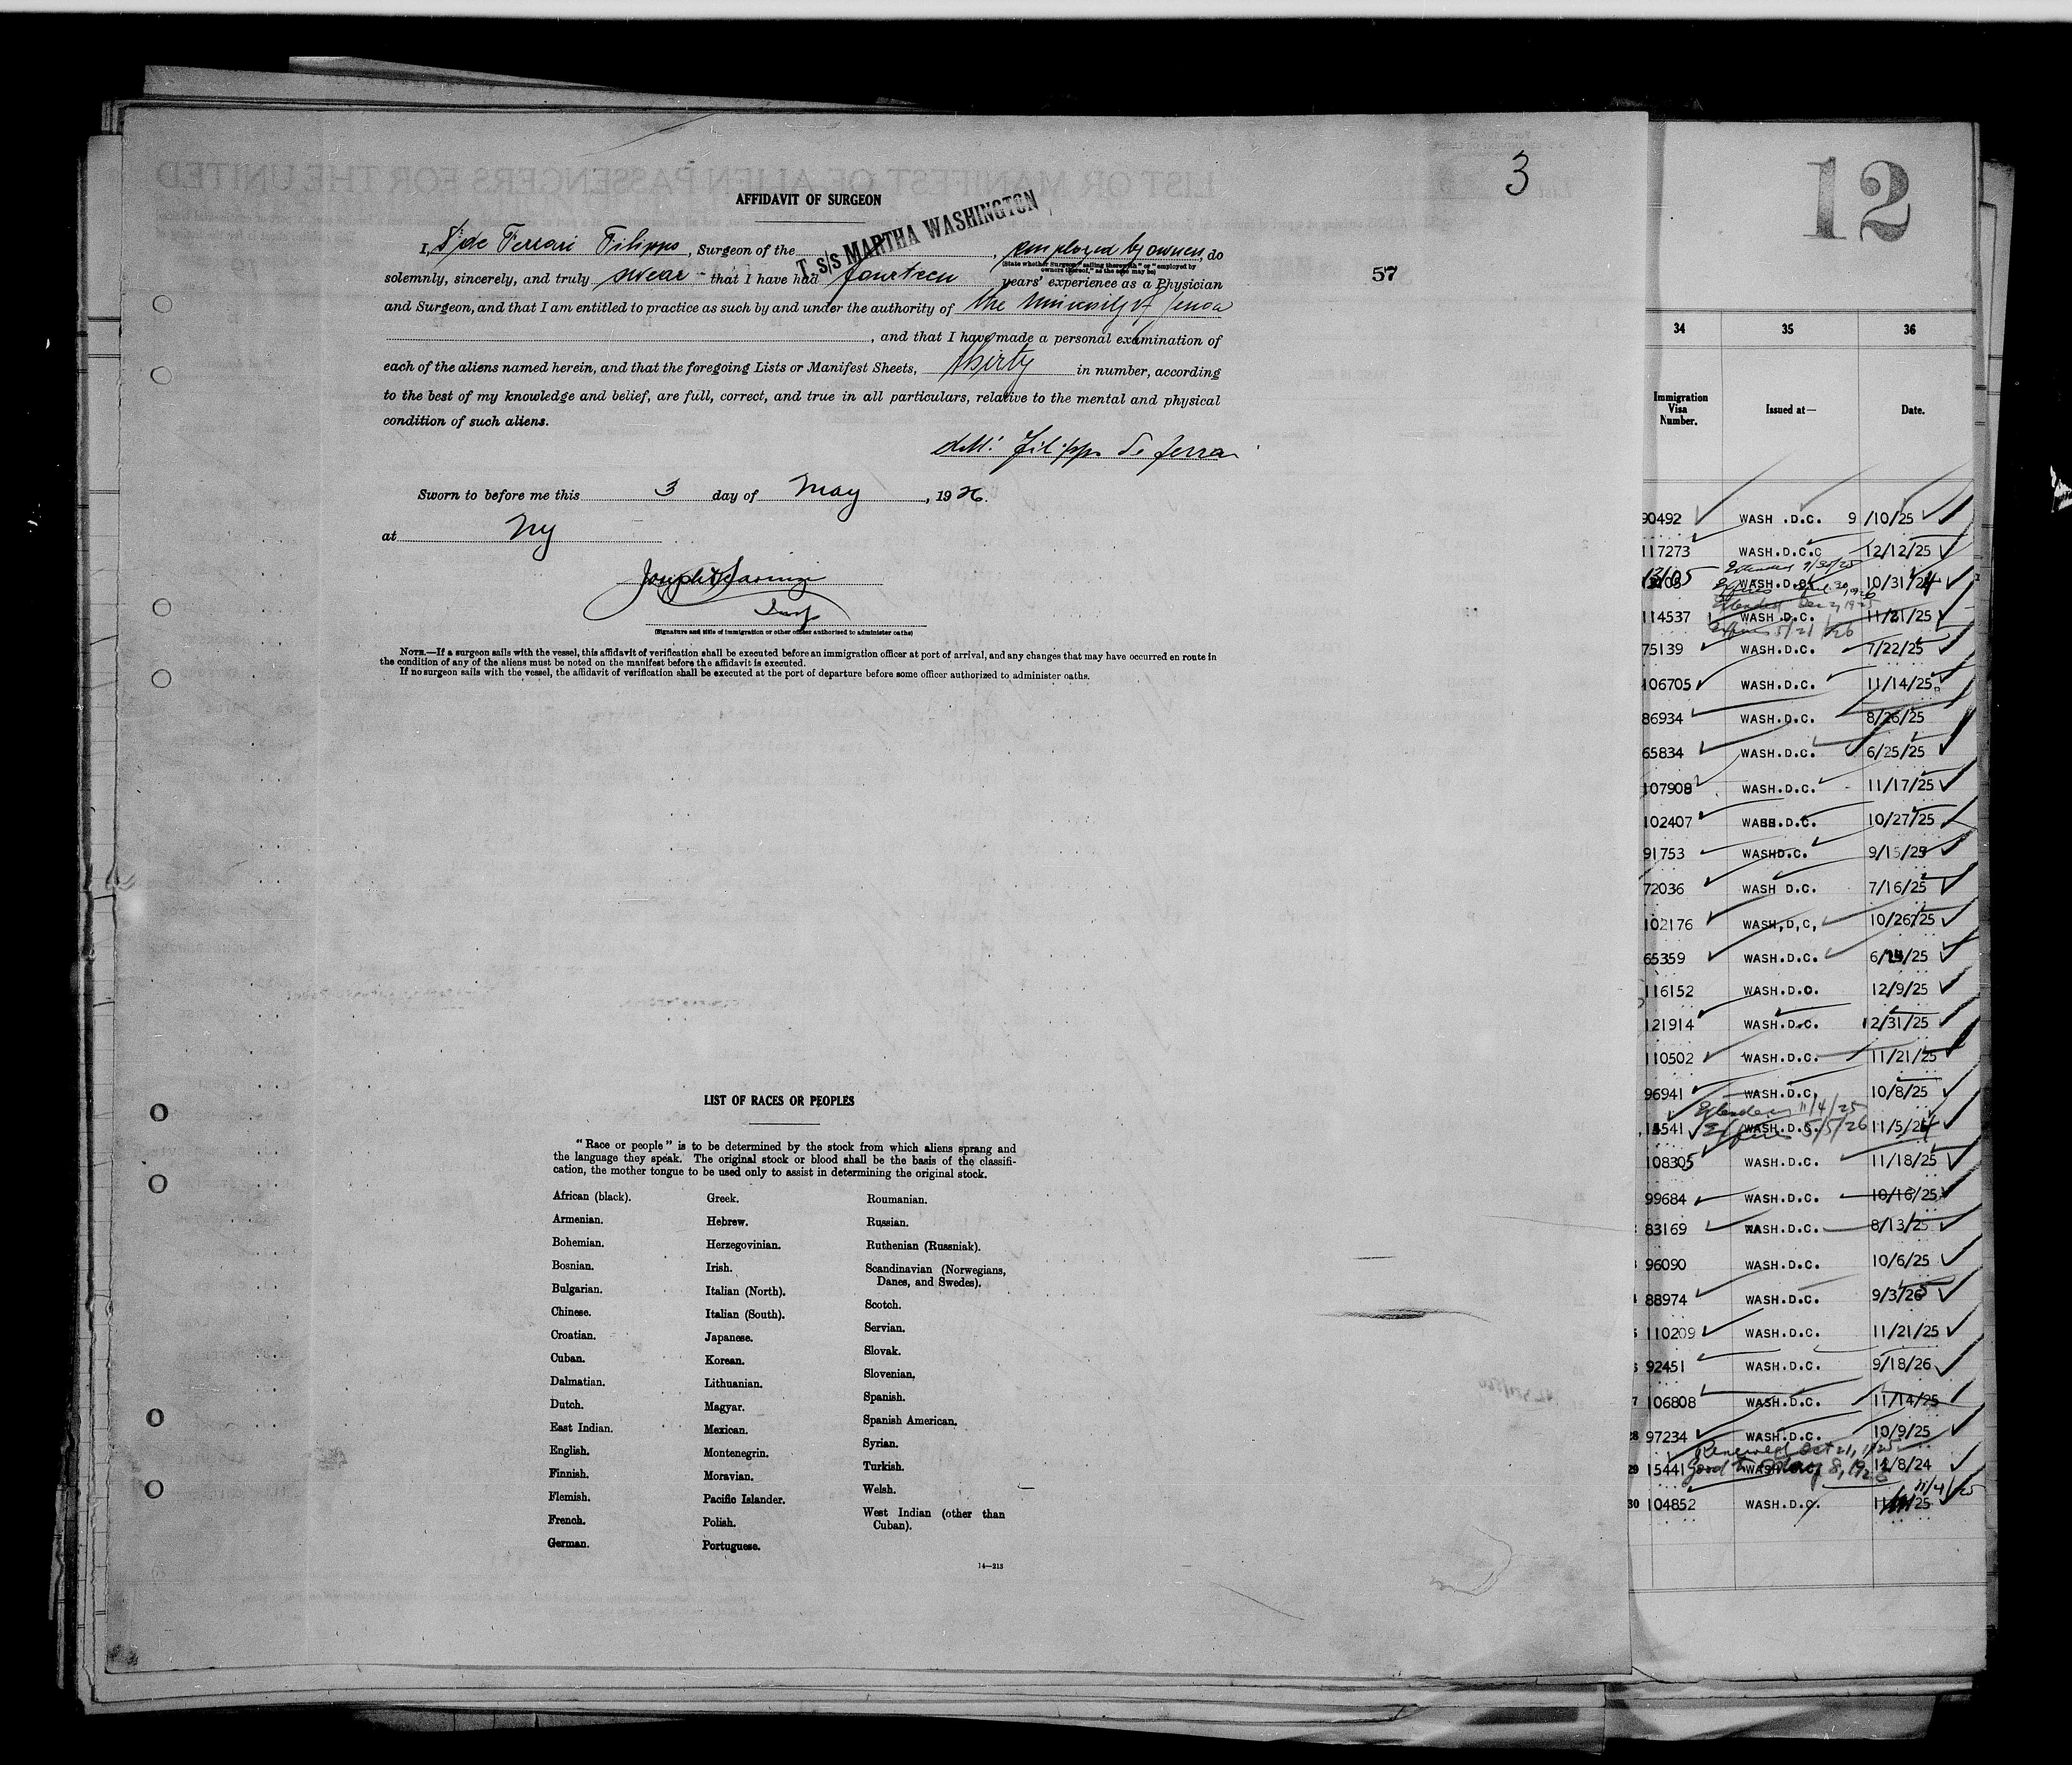 3
12
57
AFFIDAVIT OF SURGEON
I, de Ferrari Filippo, Surgeon of the T. s/s MARTHA WASHINGTON, employed by owners, do
(State whether Surgeon "sailing therewith" or "employed by owners thereof," as the case may be)
solemnly, sincerely, and truly swear that I have had fourteen years' experience as a Physician
and Surgeon, and that I am entitled to practice as such by and under the authority of the University of Genoa
, and that I have made a personal examination of
each of the aliens named herein, and that the foregoing Lists or Manifest Sheets, thirty in number, according
to the best of my knowledge and belief, are full, correct, and true in all particulars, relative to the mental and physical
condition of such aliens.
Filippo de ferrari
Sworn to before me this 3 day of May, 1926.
at NY
Joseph
Insp
(Signature and title of immigration or other officer authorized to administer oaths)
NOTE.—If a surgeon sails with the vessel, this affidavit of verification shall be executed before an immigration officer at port of arrival, and any changes that may have occurred en route in
the condition of any of the aliens must be noted on the manifest before the affidavit is executed.
If no surgeon sails with the vessel, the affidavit of verification shall be executed at the port of departure before some officer authorized to administer oaths.
LIST OF RACES OR PEOPLES
"Race or people" is to be determined by the stock from which aliens sprang and
the language they speak. The original stock or blood shall be the basis of the classifi-
cation, the mother tongue to be used only to assist in determining the original stock.
African (black).
Armenian.
Bohemian.
Bosnian.
Bulgarian.
Chinese.
Croatian.
Cuban.
Dalmatian.
Dutch.
East Indian.
English.
Finnish.
Flemish.
French.
German.
Greek.
Hebrew.
Herzegovinian.
Irish.
Italian (North).
Italian (South).
Japanese.
Korean.
Lithuanian.
Magyar.
Mexican.
Montenegrin.
Moravian.
Pacific Islander.
Polish.
Portuguese.
Roumanian.
Russian.
Ruthenian (Russniak).
Scandinavian (Norwegians,
Danes, and Swedes).
Scotch.
Servian.
Slovak.
Slovenian.
Spanish.
Spanish American.
Syrian.
Turkish.
Welsh.
West Indian (other than
Cuban).
14—213
34 35 36
Immigration Visa Number. Issued at— Date.
90492 WASH .D.C. 9 /10/25
117273 WASH.D.C.C 12/12/25
Extended 9/30/25
WASH.D.C. 10/31/24
Expires April 30, 1926
Extended Dec 2, 1925
114537 WASH .D.C. 11/21/25
Expires 5/21/26
75139 WASH.D.C. 7/22/25
106705 WASH.D.C. 11/14/25
86934 WASH.D.C. 8/26/25
65834 WASH.D.C. 6/25/25
107908 WASH.D.C. 11/17/25
102407 WASH.D.C. 10/27/25
91753 WASHD.C. 9/15/25
72036 WASH D.C. 7/16/25
102176 WASH,D,C, 10/26/25
65359 WASH.D.C. 6/24/25
116152 WASH.D.C. 12/9/25
121914 WASH.D.C. 12/31/25
110502 WASH.D.C. 11/21/25
96941 WASH.D.C, 10/8/25
Extended 11/4/25
15541 WASH.D.C. 11/5/24
Expires 5/5/26
108305 WASH.D.C. 11/18/25
99684 WASH.D.C. 10/16/25
83169 WASH.D.C. 8/13/25
96090 WASH.D.C. 10/6/25
88974 WASH.D.C. 9/3/25
110209 WASH.D.C. 11/21/25
92451 WASH.D.C. 9/18/26
7 106808 WASH.D.C. 11/14/25
28 97234 WASH.D.C. 10/9/25
Renewed Oct 21, 1925
29 15441 WASH 11/8/24
Good to May 8, 1926
11/4/25
30 104852 WASH.D.C. 25